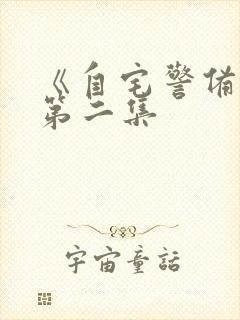 《自宅警备
第二集
宇宙童話